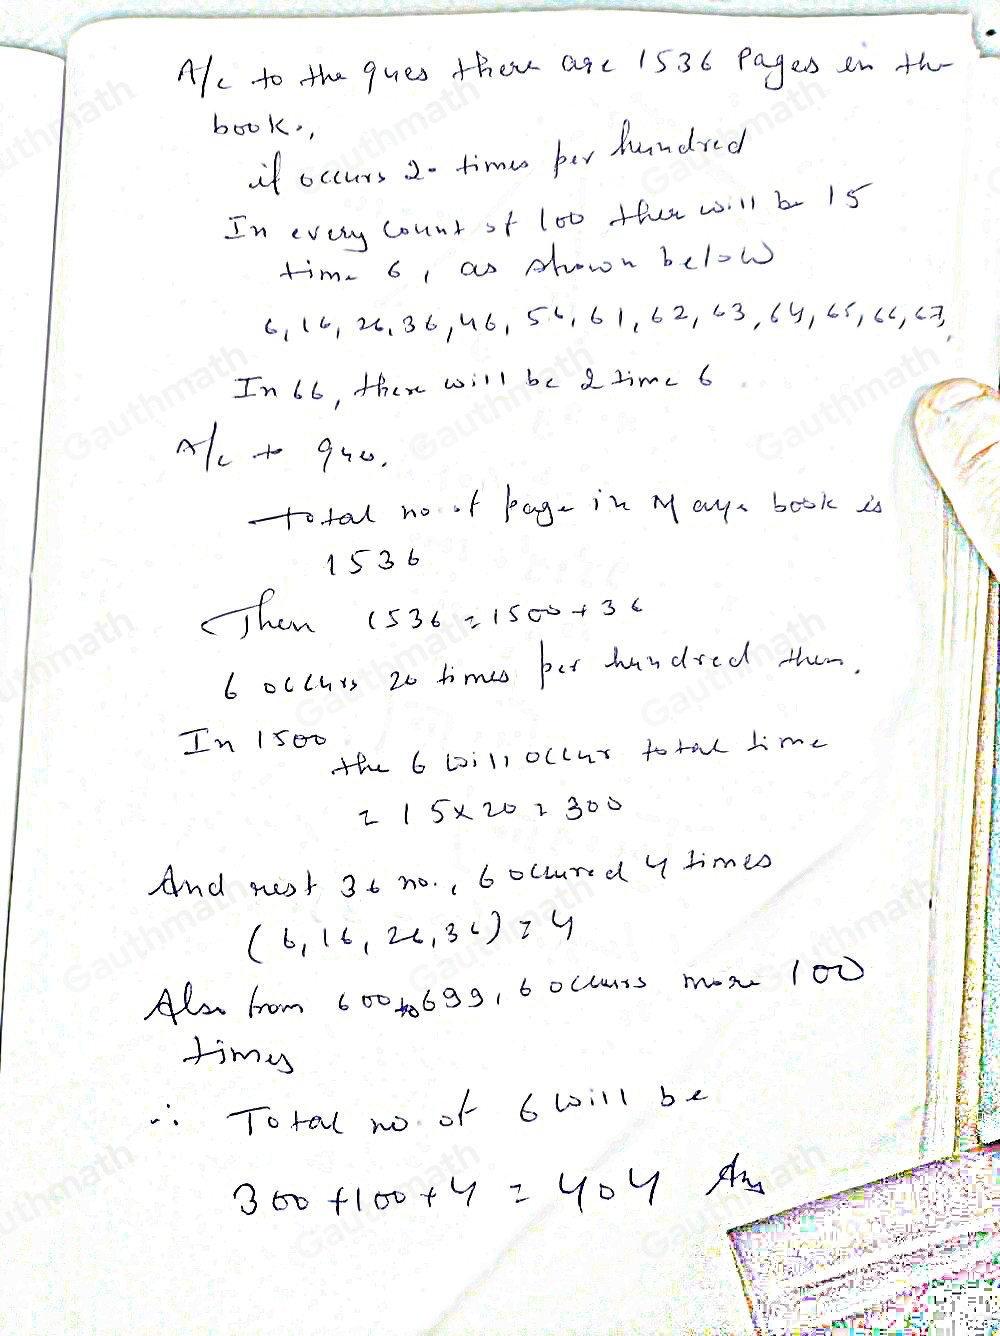 A/c to the ques there are 1536 Pages in the
book.,
if occurs 20 times per hundred
In every count of 100 ther will be 15
time 6, as shown below
6, 16, 26, 36, 46, 56, 61, 62, 63, 64, 65, 66, 67,
In 66, there will be 2 time 6
A/c to que.
Total no of page in Maya book is
1536
Then 1536 = 1500 + 36
6 occurs 20 times per hundred then.
In 1500
the 6 will occur total time
= 15 x 20 = 300
And rest 36 no., 6 occured 4 times
(6, 16, 26, 36) = 4
Also from 600 to 699, 6 occurs more 100
times
∴ Total no of 6 will be
300 + 100 + 4 = 404 Ans
Gauthmath